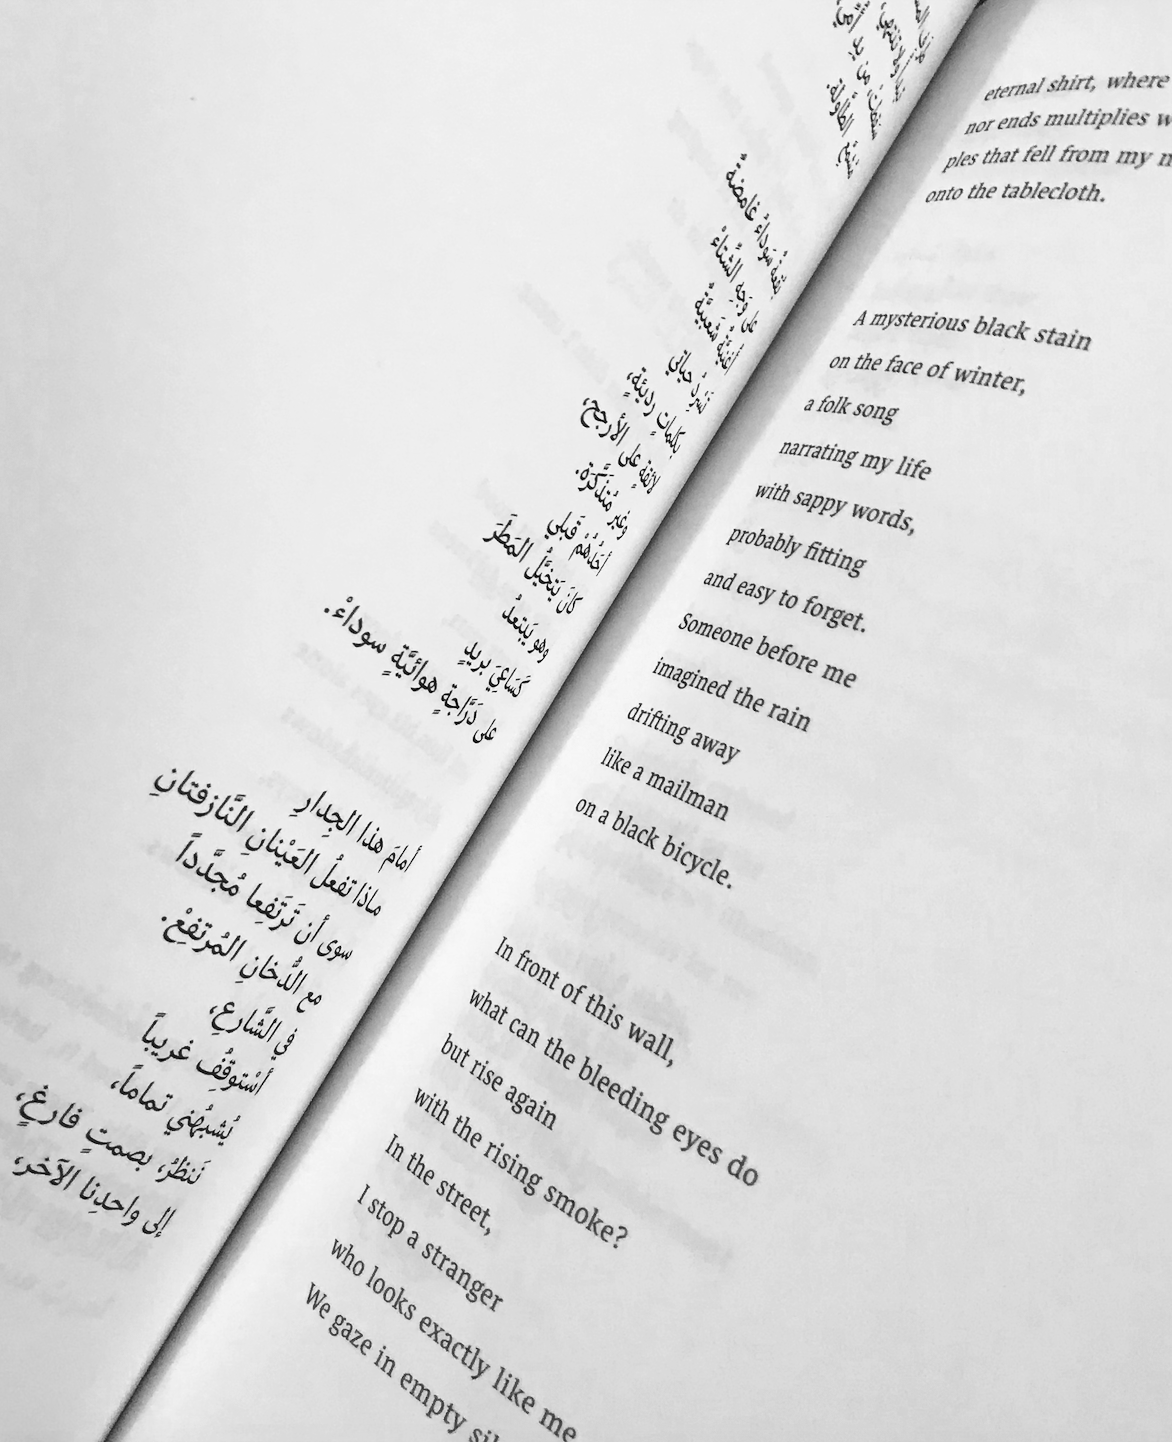 بُقعةٌ سَوداءُ غامضةٌ
على وَجهِ الشّتاءْ
أغنيَّةٌ شَعبيَّةٌ
تَسْردُ حياتي
بكلماتٍ رديئةٍ،
لائقةٍ على الأرجح،
وغير مُتذَكَّرَة.
أحَدُهُمْ قَبلي
كانَ يَتخيَّلُ المَطَرَ
وهو يَبتعدُ
كَسَاعِيَ بريدٍ
على دَرَّاجةٍ هوائيَّةٍ سوداءْ.
أمامَ هذا الجِدارِ
ماذا تفعلُ العَيْنانِ النَّازفتانِ
سوى أن تَرتَفِعا مُجَّدداً
مع الدُّخانِ المُرتفِعْ.
في الشَّارعِ،
أسْتوقُفِ غريباً
يُشبهُني تماماً،
نَنظرُ، بصمتٍ فارغٍ،
إلى واحدِنا الآخر،
eternal shirt, where
nor ends multiplies
ples that fell from my
onto the tablecloth.
A mysterious black stain
on the face of winter,
a folk song
narrating my life
with sappy words,
probably fitting
and easy to forget.
Someone before me
imagined the rain
drifting away
like a mailman
on a black bicycle.
In front of this wall,
what can the bleeding eyes do
but rise again
with the rising smoke?
In the street,
I stop a stranger
who looks exactly like me
We gaze in empty